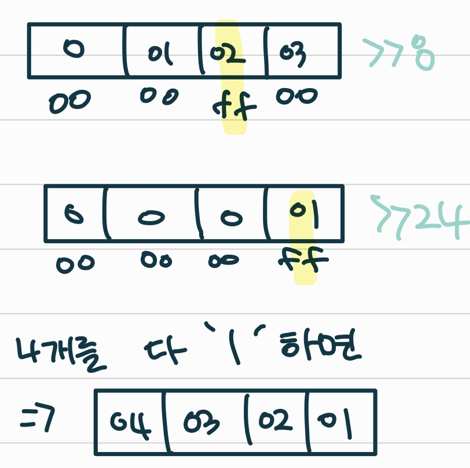 0 01 02 03 >>8
00 00 ff 00
0 0 0 01 >>24
00 00 00 ff
4개를 다 '|' 하면
=> 04 03 02 01